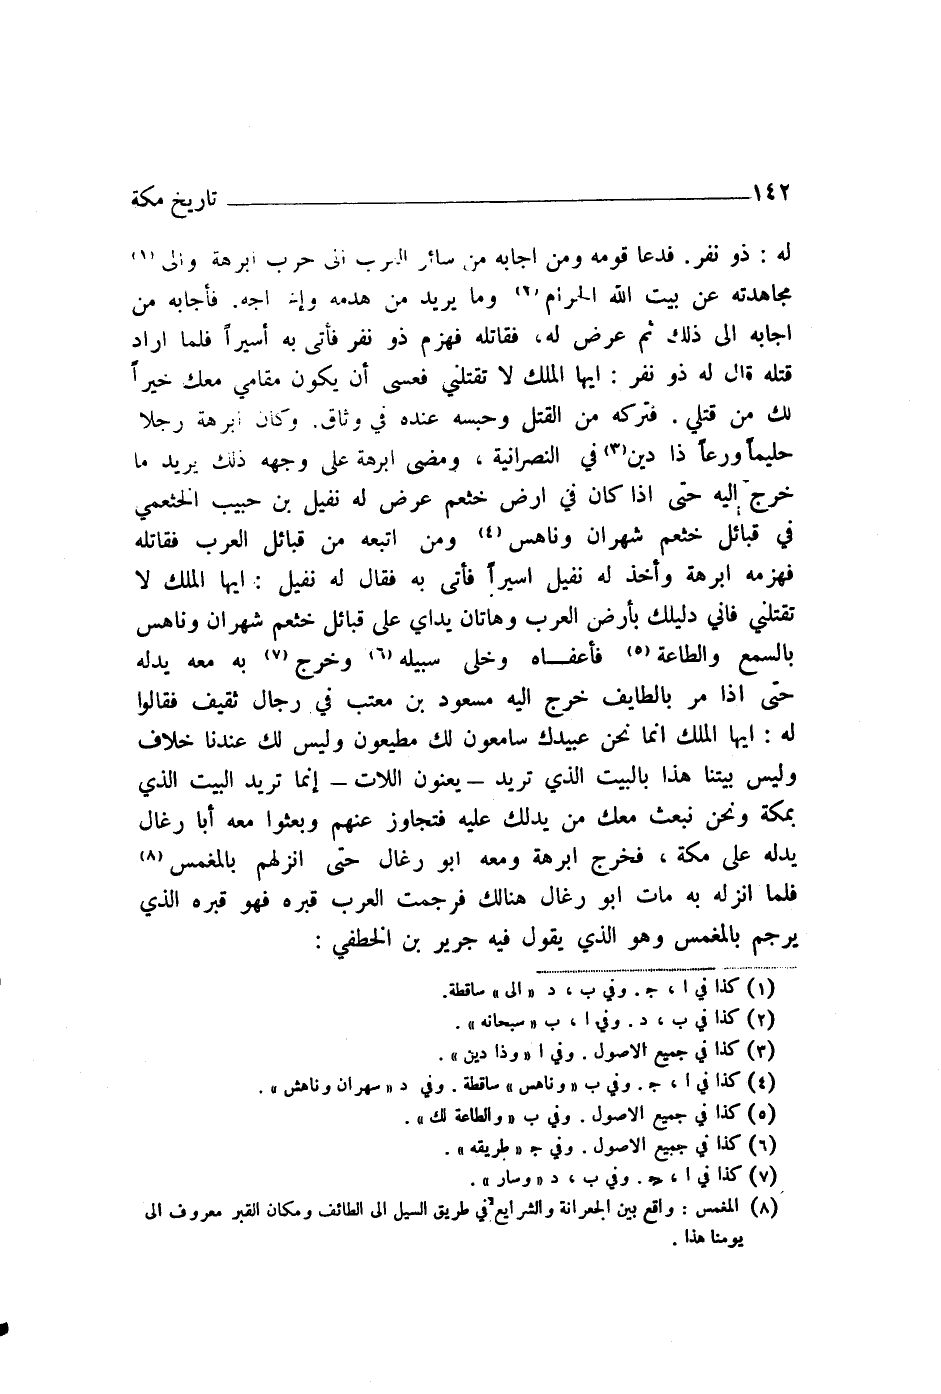 ١٤٢ تاريخ مكة
له : ذو نفر. فدعا قومه ومن اجابه من سائر العرب الى حرب ابرهة والى (١)
مجاهدته عن بيت الله الحرام (٢) وما يريد من هدمه واخراجه. فأجابه من
اجابه الى ذلك ثم عرض له، فقاتله فهزم ذو نفر فأتى به أسيراً فلما اراد
قتله قال له ذو نفر : ايها الملك لا تقتلني فعسى أن يكون مقامي معك خيراً
لك من قتلي. فتركه من القتل وحبسه عنده في وثاق. وكان ابرهة رجلا
حليماً ورعاً ذا دين (٣) في النصرانية ، ومضى ابرهة على وجهه ذلك يريد ما
خرج إليه حتى اذا كان في ارض خثعم عرض له نفيل بن حبيب الخثعمي
في قبائل خثعم شهران وناهس (٤) ومن اتبعه من قبائل العرب فقاتله
فهزمه ابرهة وأخذ له نفيل اسيراً فأتى به فقال له نفيل : ايها الملك لا
تقتلني فاني دليلك بأرض العرب وهاتان يداي على قبائل خثعم شهران وناهس
بالسمع والطاعة (٥) فأعفـــاه وخلى سبيله (٦) وخرج (٧) به معه يدله
حتى اذا مر بالطايف خرج اليه مسعود بن معتب في رجال ثقيف فقالوا
له : ايها الملك انما نحن عبيدك سامعون لك مطيعون وليس لك عندنا خلاف
وليس بيتنا هذا بالبيت الذي تريد – يعنون اللات – إنما تريد البيت الذي
بمكة ونحن نبعث معك من يدلك عليه فتجاوز عنهم وبعثوا معه أبا رغال
يدله على مكة ، فخرج ابرهة ومعه ابو رغال حتى انزلهم بالمغمس (٨)
فلما انزله به مات ابو رغال هنالك فرجمت العرب قبره فهو قبره الذي
يرجم بالمغمس وهو الذي يقول فيه جرير بن الخطفي :
(١) كذا في ا ، ج. وفي ب ، د « الى » ساقطة.
(٢) كذا في ب ، د. وفي ا ، ب « سبحانه ».
(٣) كذا في جميع الاصول. وفي ا « وذا دين ».
(٤) كذا في ا ، ج. وفي ب « وناهس » ساقطة. وفي د « سهران وناهش ».
(٥) كذا في جميع الاصول. وفي ب « والطاعة لك ».
(٦) كذا في جميع الاصول. وفي ج « طريقه ».
(٧) كذا في ا ، ج. وفي ب ، د « وسار ».
(٨) المغمس : واقع بين الجعرانة والشرايع في طريق السيل الى الطائف ومكان القبر معروف الى
يومنا هذا.